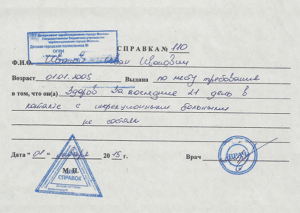 Департамент здравоохранения города Москвы
СПРАВКА № 110
Ф.И.О. Иванов Иван Иванович
Возраст 01.01.2005 Выдана по месту требования
в том, что он(а) Здоров За последние 21 день в
контакте с инфекционными больными
не состоял
Дата "01" января 2015 г. Врач
М.П.
ДЛЯ СПРАВОК
ВРАЧ